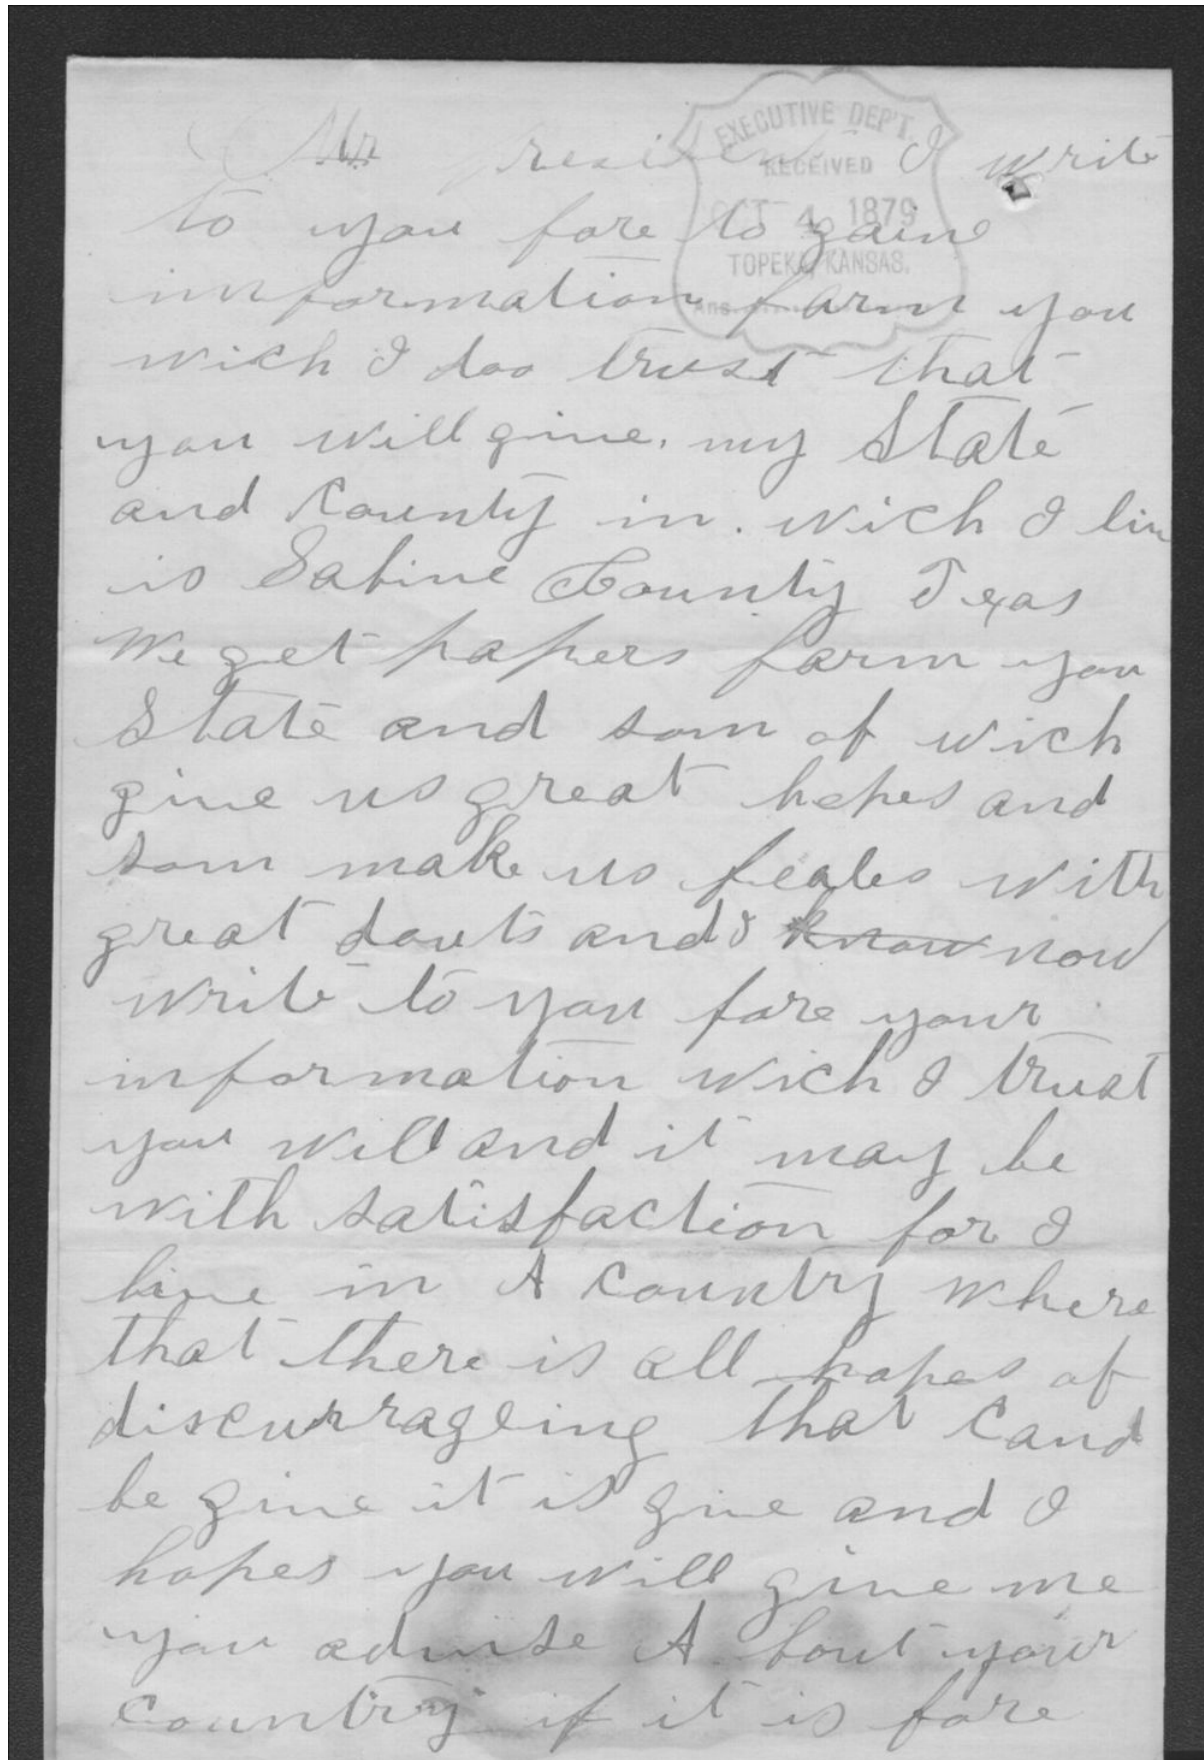 Mr President I write
EXECUTIVE DEP'T.
RECEIVED
OCT 4 1879
TOPEKA, KANSAS.
Ans.
to you fore to gaine
information farm you
wich I doo trust that
you will give. my State
and County in. wich I liv
is Sabine County Texas
We get papers farm you
State and som of wich
give us great hopes and
som make us feales with
great douts and I know now
write to you fore your
information wich I trust
you will and it may be
with satisfaction for I
live in A Country where
that there is all hopes of
discurrageing that Cand
be give it is give and I
hopes you will give me
you advise A bout your
Country if it is fore